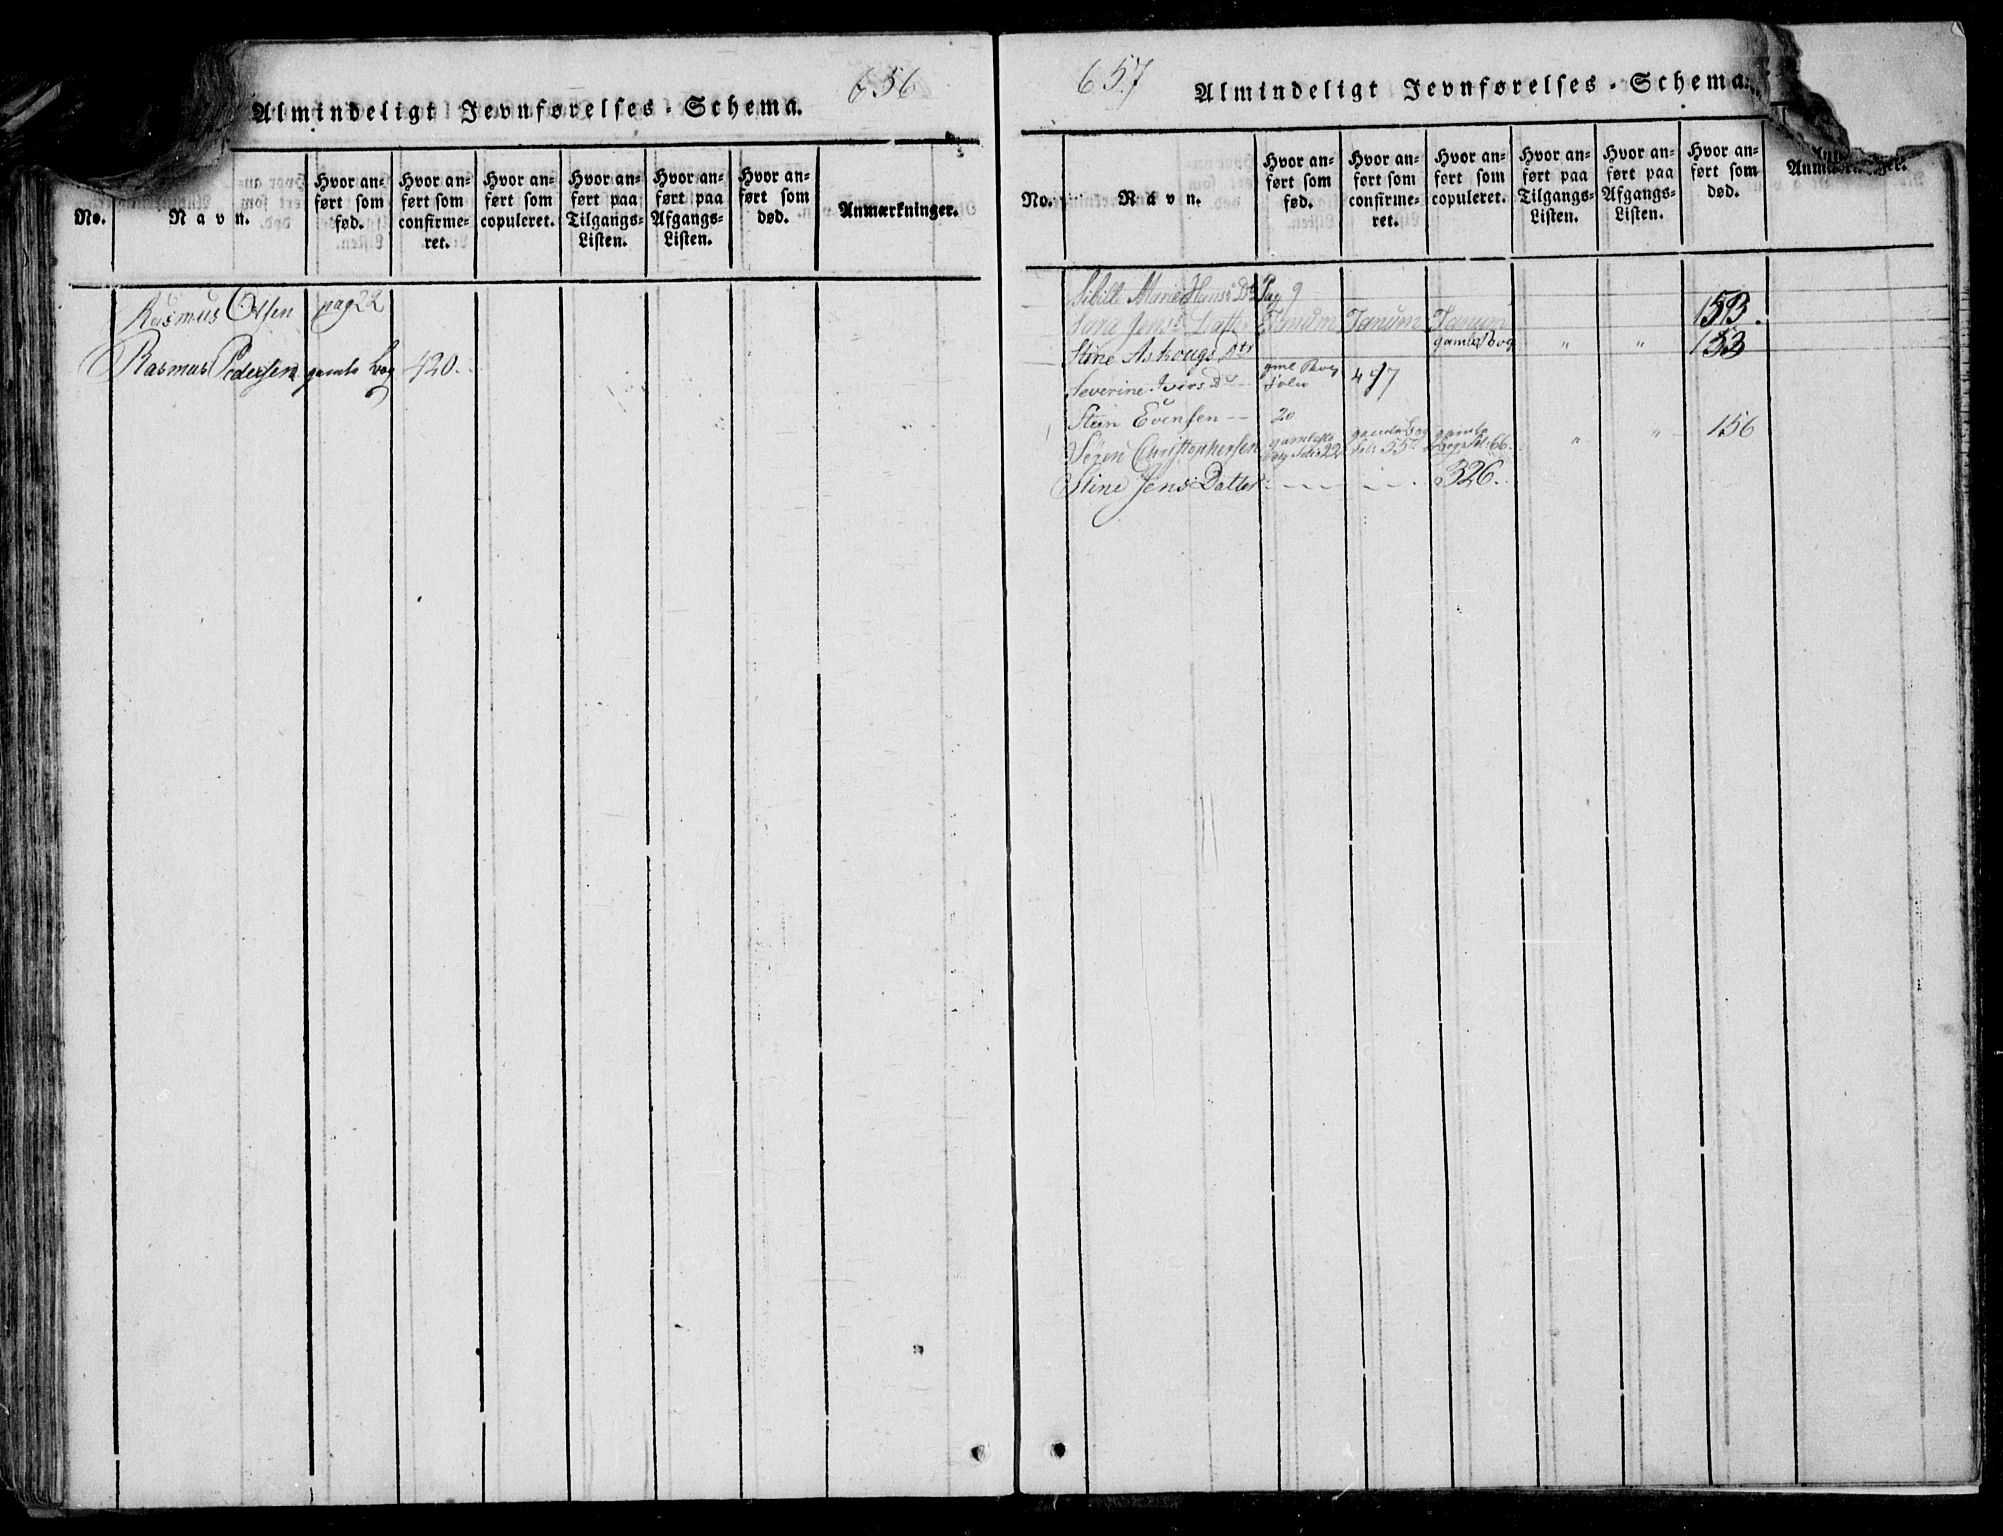 656
Almindeligt Jevnførelses-Schema.
No. Navn. Hvor anført som fød. Hvor anført som confirmeret. Hvor anført som copuleret. Hvor anført paa Tilgangs-Listen. Hvor anført paa Afgangs-Listen. Hvor anført som død. Anmærkninger.
Rasmus Olsen pag 22
Rasmus Pedersen gamle bog 420.
657
Almindeligt Jevnførelses-Schema.
No. Navn. Hvor anført som fød. Hvor anført som confirmeret. Hvor anført som copuleret. Hvor anført paa Tilgangs-Listen. Hvor anført paa Afgangs-Listen. Hvor anført som død.
Sibille Marie Hans Dtr Pag 9
Jens Datter Tanum Tanum Tanum 153.
Stine Askougs Dtr gamle Bog " " 153
Severine Ivers Dr 497
Steen Evensen -- 20
Søren Christophersen gamle bog Fol: 22 gamle bog Fol: 55 gamle bog Fol: 66. " " 156
Stine Jens Datter - - - - - - 326.